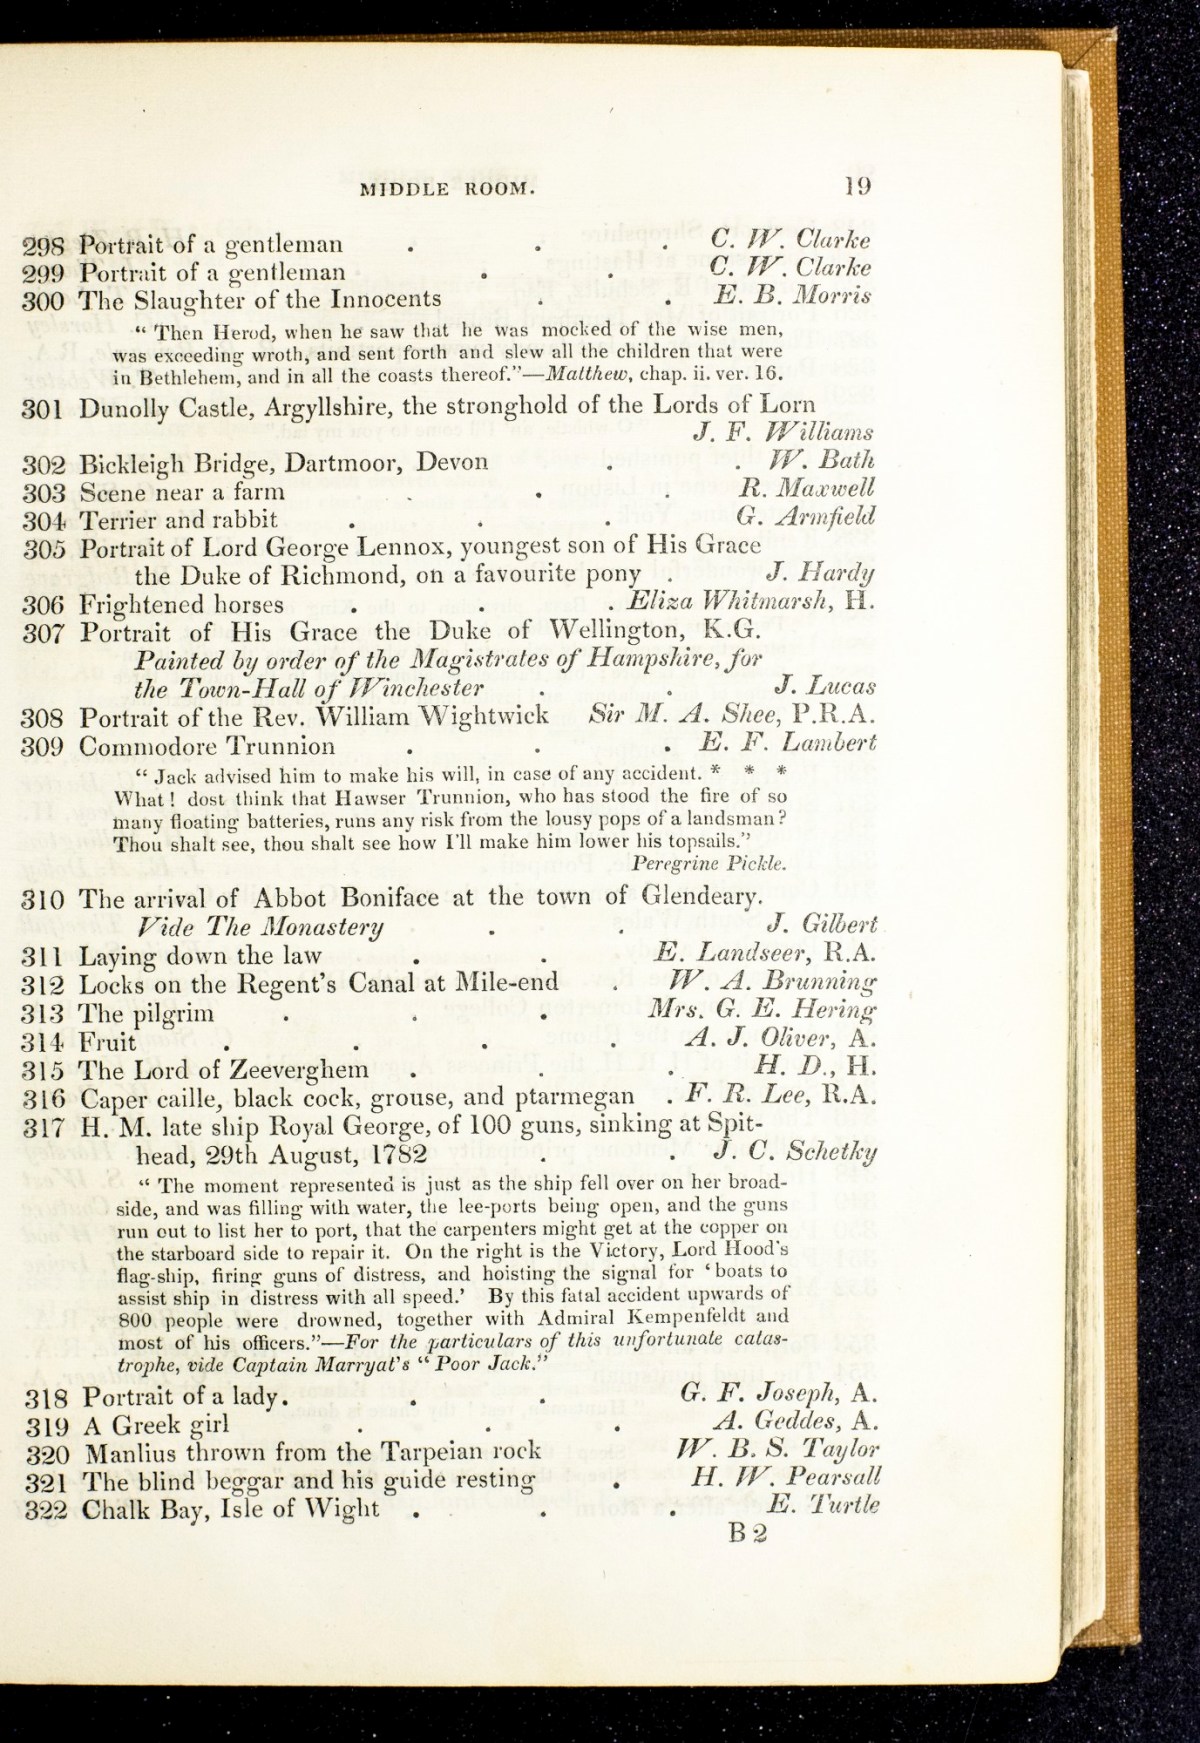 MIDDLE ROOM. 19
298 Portrait of a gentleman . . . C. W. Clarke
299 Portrait of a gentleman . . . C. W. Clarke
300 The Slaughter of the Innocents . . E. B. Morris
“ Then Herod, when he saw that he was mocked of the wise men,
was exceeding wroth, and sent forth and slew all the children that were
in Bethlehem, and in all the coasts thereof.”—Matthew, chap. ii. ver. 16.
301 Dunolly Castle, Argyllshire, the stronghold of the Lords of Lorn
J. F. Williams
302 Bickleigh Bridge, Dartmoor, Devon . . W. Bath
303 Scene near a farm . . . R. Maxwell
304 Terrier and rabbit . . . G. Armfield
305 Portrait of Lord George Lennox, youngest son of His Grace
the Duke of Richmond, on a favourite pony . J. Hardy
306 Frightened horses . . . Eliza Whitmarsh, H.
307 Portrait of His Grace the Duke of Wellington, K.G.
Painted by order of the Magistrates of Hampshire, for
the Town-Hall of Winchester . . J. Lucas
308 Portrait of the Rev. William Wightwick Sir M. A. Shee, P.R.A.
309 Commodore Trunnion . . . E. F. Lambert
“ Jack advised him to make his will, in case of any accident. * * *
What ! dost think that Hawser Trunnion, who has stood the fire of so
many floating batteries, runs any risk from the lousy pops of a landsman ?
Thou shalt see, thou shalt see how I'll make him lower his topsails.”
Peregrine Pickle.
310 The arrival of Abbot Boniface at the town of Glendeary.
Vide The Monastery . . J. Gilbert
311 Laying down the law . . E. Landseer, R.A.
312 Locks on the Regent's Canal at Mile-end . W. A. Brunning
313 The pilgrim . . . Mrs. G. E. Hering
314 Fruit . . . . A. J. Oliver, A.
315 The Lord of Zeeverghem . . . H. D., H.
316 Caper caille, black cock, grouse, and ptarmegan . F. R. Lee, R.A.
317 H. M. late ship Royal George, of 100 guns, sinking at Spit-
head, 29th August, 1782 . . J. C. Schetky
“ The moment represented is just as the ship fell over on her broad-
side, and was filling with water, the lee-ports being open, and the guns
run out to list her to port, that the carpenters might get at the copper on
the starboard side to repair it. On the right is the Victory, Lord Hood's
flag-ship, firing guns of distress, and hoisting the signal for ‘ boats to
assist ship in distress with all speed.’ By this fatal accident upwards of
800 people were drowned, together with Admiral Kempenfeldt and
most of his officers.”—For the particulars of this unfortunate catas-
trophe, vide Captain Marryat's “ Poor Jack.”
318 Portrait of a lady . . . G. F. Joseph, A.
319 A Greek girl . . . A. Geddes, A.
320 Manlius thrown from the Tarpeian rock W. B. S. Taylor
321 The blind beggar and his guide resting . H. W. Pearsall
322 Chalk Bay, Isle of Wight . . . E. Turtle
B 2